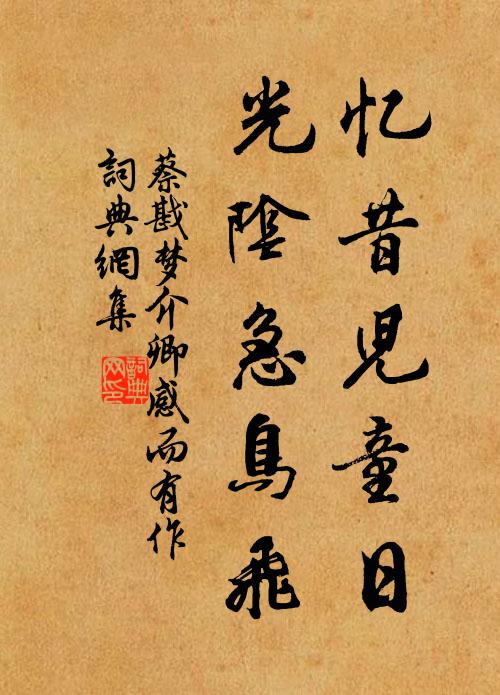 忆昔児童日
光陰急鳥飛
蔡戡梦介卿感而有作
詞典網集
詞典网印